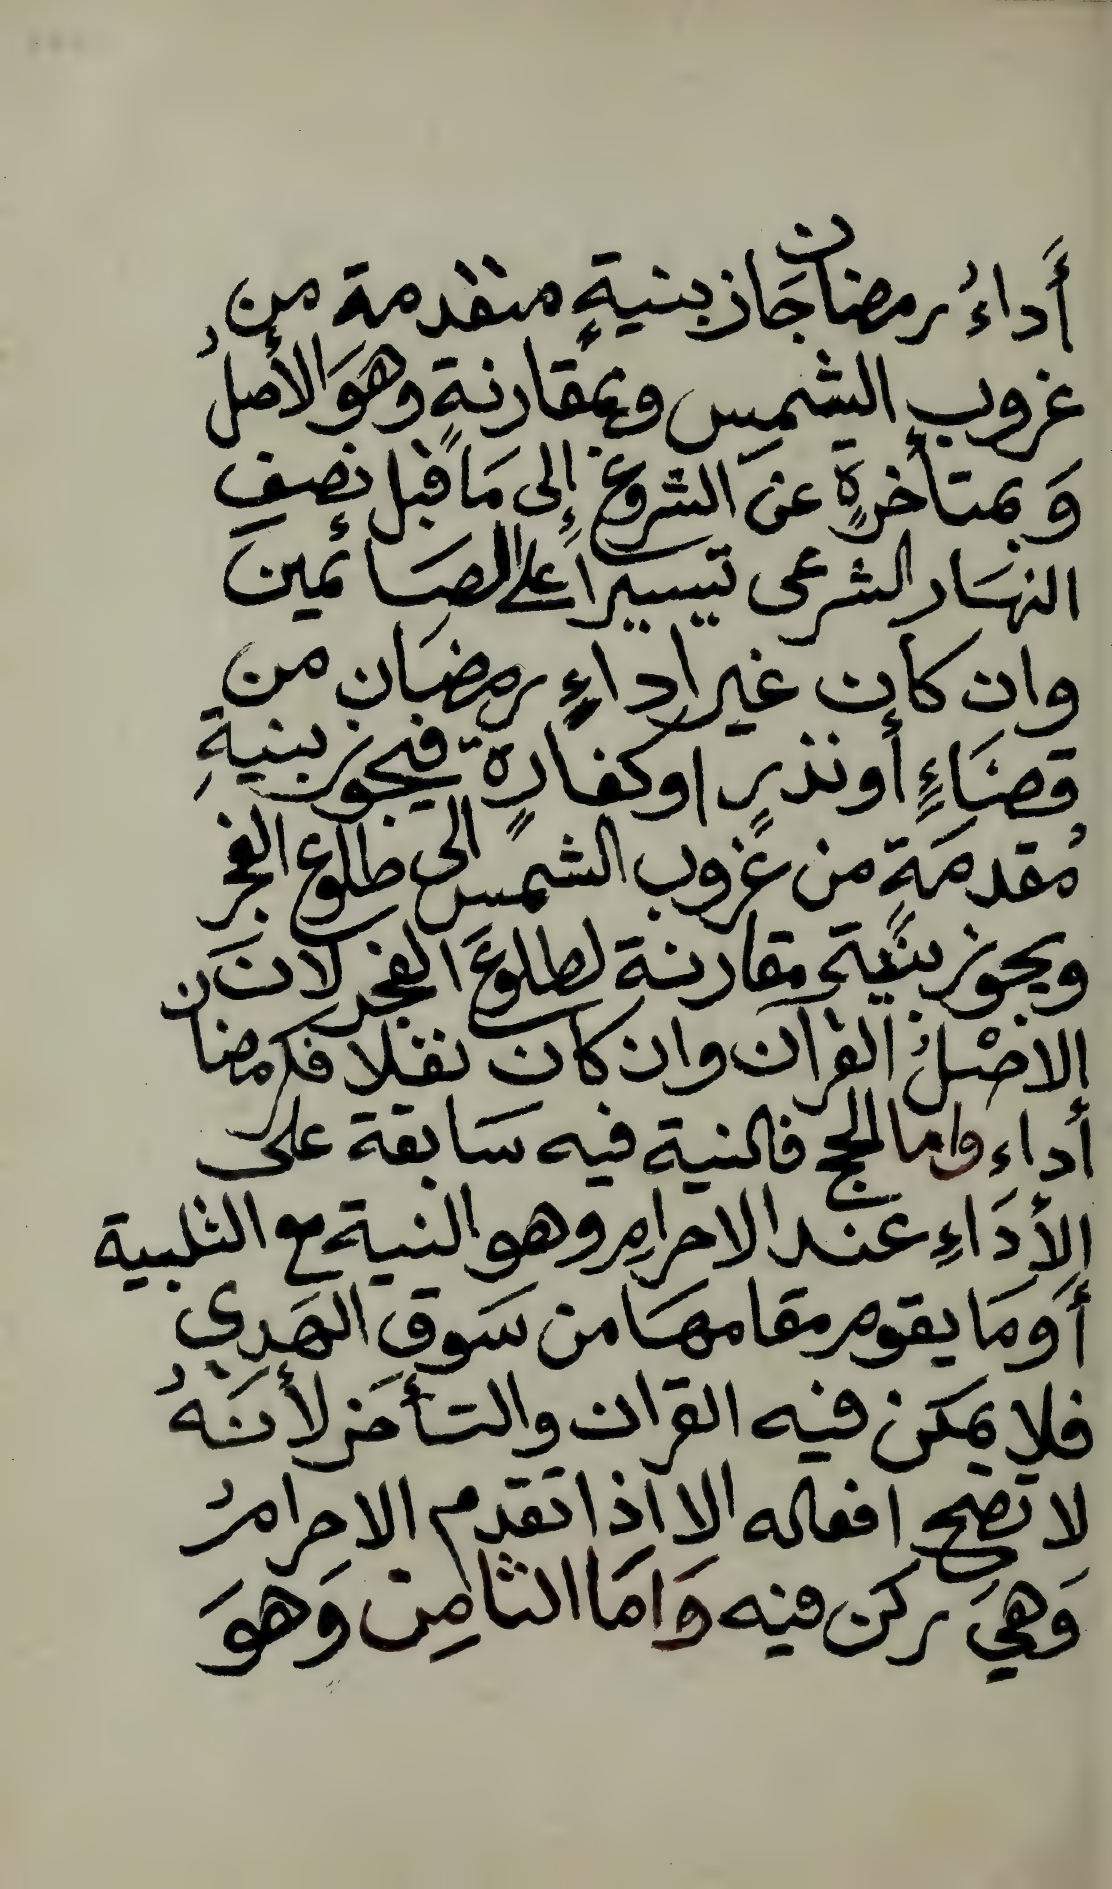 أَداءُ رمضان جَاز بنيةٍ متقدمة من
غروب الشمس وبمقارنةٍ وهوَ الأصلُ
وَبمتأخرةٍ عن الشروع إلى مَا قبل نصفِ
النهَار الشرعى تيسيراً على الصَائمين
وان كان غير اداءٍ رمضَان من
قضَاءٍ أو نذرٍ او كفارةٍ فيجوز بنيةِ
مُقدمَةٍ من غروب الشمس الى طلوع الفجر
ويجوز بنيةٍ مقارنة لطلوع الفجر لانَ
الاصْلُ القران وان كان نفلا فكرمضان
أداء واما الحج فالنية فيه سَابقة على
الأدَاءِ عند الاحرامِ وهو النية مع التلبية
أَو مَا يقوم مقامهَا من سَوق الهَدِي
فلا يمكن فيه القران والتأخر لأنَهُ
لا تصح افعاله الا اذا تقدم الاحرامُ
وَهيَ ركَن فيه وَامَا الثامِن وَهوَ